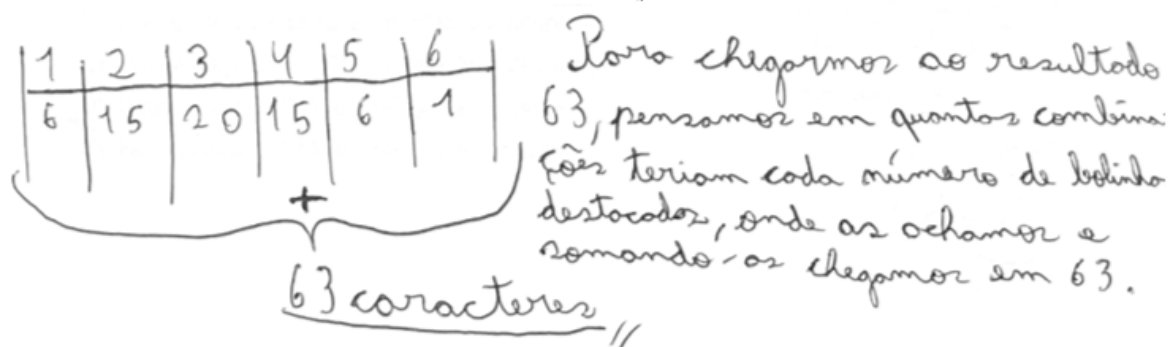 1 2 3 4 5 6
6 15 20 15 6 1
+
63 caracteres
Para chegarmos ao resultado
63, pensamos em quantas combina
ções teriam cada número de bolinha
destacadas, onde as achamos e
somando-as chegamos em 63.